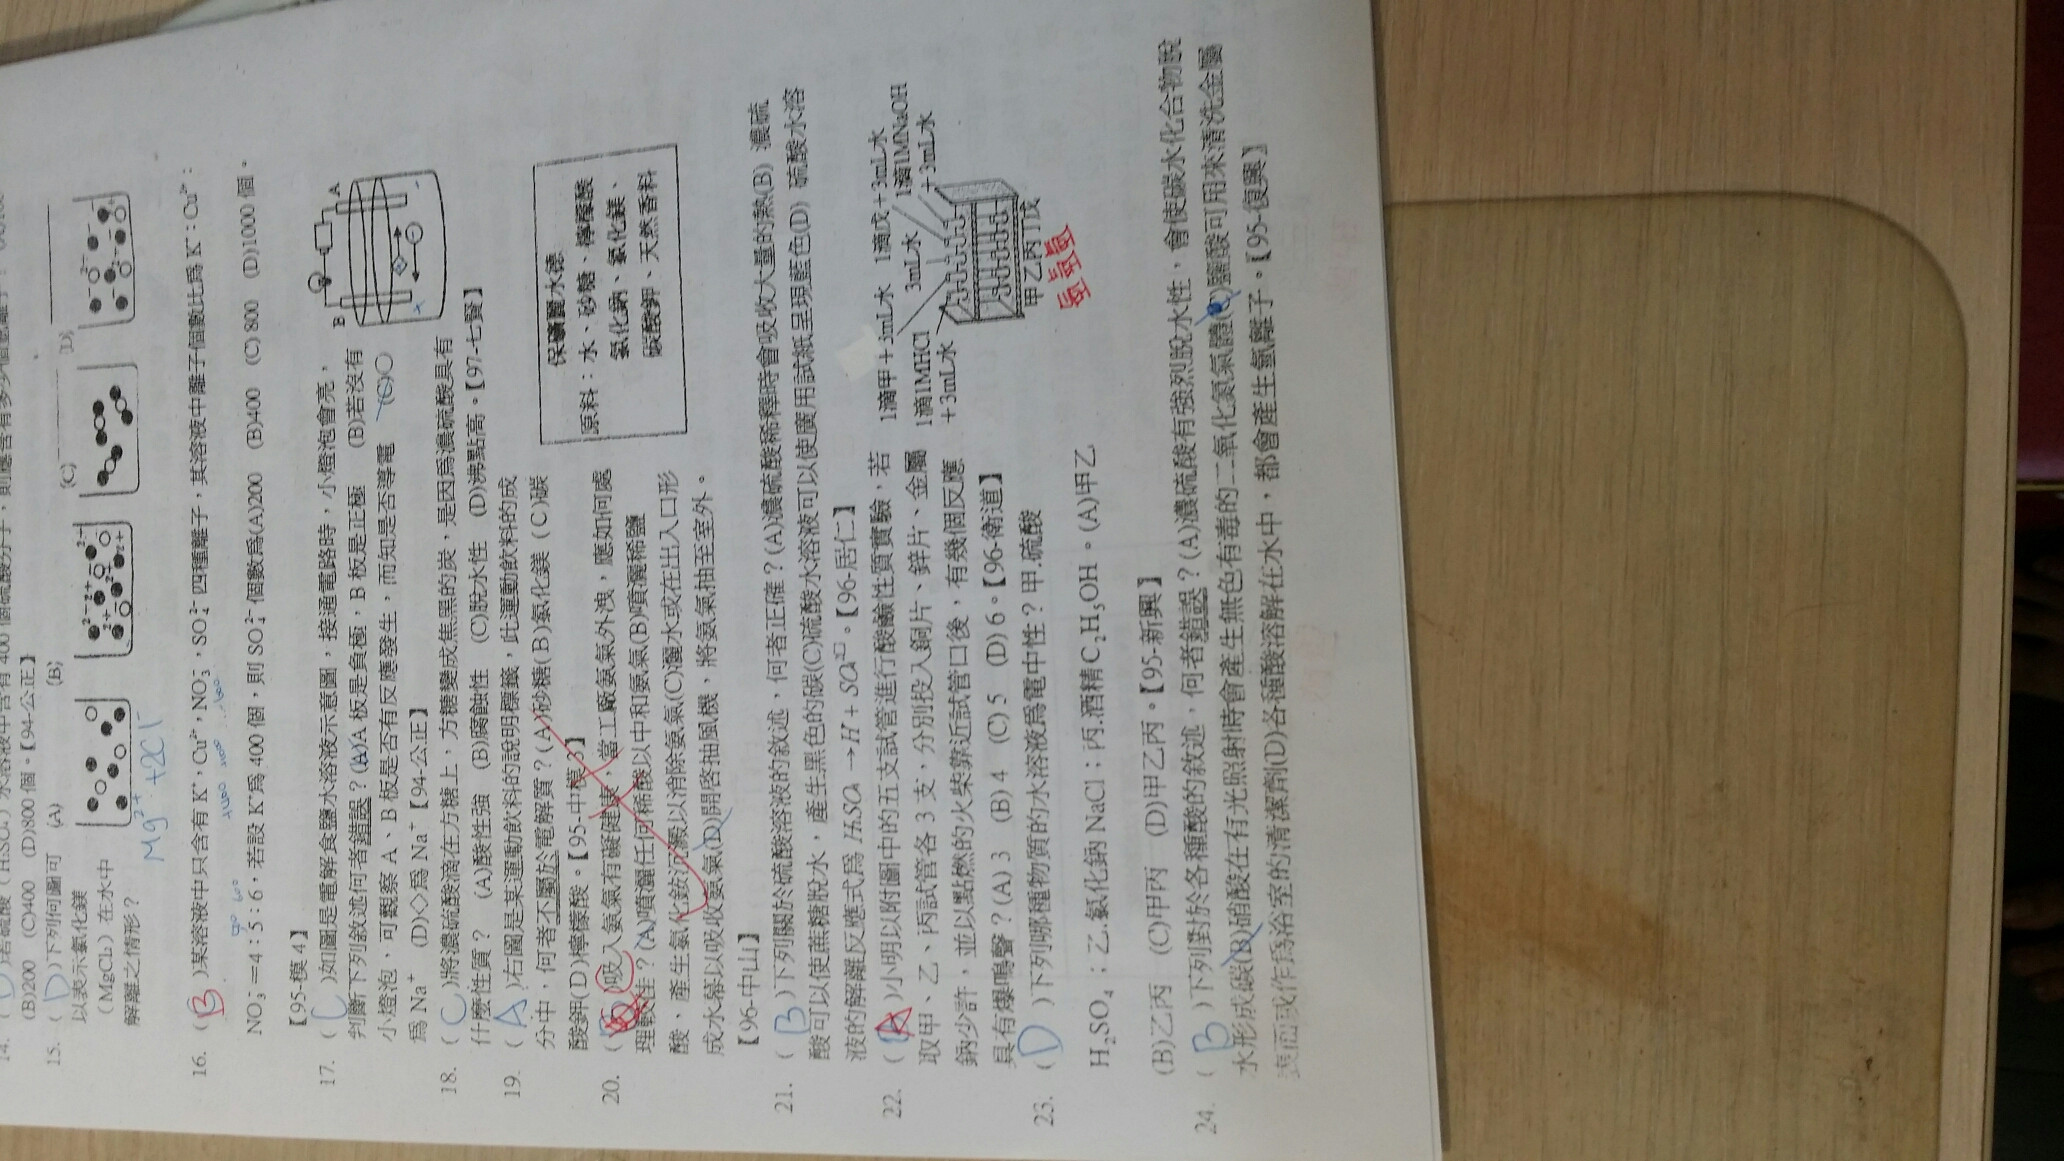 (B)200 (C)400 (D)800個。【94-公正】
15. (D)下列何圖可
以表示氯化鎂
(MgCl₂)在水中
解離之情形？
(A)
(B)
(C)
(D)
Mg²⁺+2Cl⁻
16. (B)某溶液中只含有K⁺,Cu²⁺,NO₃⁻,SO₄²⁻四種離子，其溶液中離子個數比為K⁺：Cu²⁺：
NO₃⁻＝4：5：6，若設K⁺為400個，則SO₄²⁻個數為(A)200 (B)400 (C)800 (D)1000個。
【95-模4】
17. (C)如圖是電解食鹽水溶液示意圖，接通電路時，小燈泡會亮，
判斷下列敘述何者錯誤？(A)A板是負極，B板是正極 (B)若沒有
小燈泡，可觀察A、B板是否有反應發生，而知是否導電 (C)○
為Na⁺ (D)◇為Na⁺【94-公正】
B
A
18. (C)將濃硫酸滴在方糖上，方糖變成焦黑的炭，是因為濃硫酸具有
什麼性質？ (A)酸性強 (B)腐蝕性 (C)脫水性 (D)沸點高。【97-七賢】
19. (A)右圖是某運動飲料的說明標籤，此運動飲料的成
分中，何者不屬於電解質？(A)砂糖(B)氯化鎂 (C)碳
酸鉀(D)檸檬酸。【95-中模3】
保礦麗水德
原料：水、砂糖、檸檬酸
氯化鈉、氯化鎂、
碳酸鉀、天然香料
20. ( )吸入氨氣有礙健康，當工廠氨氣外洩，應如何處
理較佳？(A)噴灑任何稀酸以中和氨氣(B)噴灑稀鹽
酸、產生氯化銨沉澱以消除氨氣(C)灑水或在出入口形
成水幕以吸收氨氣(D)開啓抽風機，將氨氣抽至室外。
【96-中山】
21. (B)下列關於硫酸溶液的敘述，何者正確？(A)濃硫酸稀釋時會吸收大量的熱(B) 濃硫
酸可以使蔗糖脫水，產生黑色的碳(C)硫酸水溶液可以使廣用試紙呈現藍色(D) 硫酸水溶
液的解離反應式為 H₂SO₄ → H⁺ + SO₄²⁻。【96-居仁】
22. (A)小明以附圖中的五支試管進行酸鹼性質實驗，若
取甲、乙、丙試管各3支，分別投入銅片、鋅片、金屬
鈉少許，並以點燃的火柴靠近試管口後，有幾個反應
具有爆鳴聲？(A) 3 (B) 4 (C) 5 (D) 6。【96-衛道】
1滴甲+3mL水 1滴戊+3mL水
1滴1MHCl 3mL水 1滴1MNaOH
+3mL水 +3mL水
甲乙丙丁戊
23. (D)下列哪種物質的水溶液為電中性？甲.硫酸
H₂SO₄；乙.氯化鈉 NaCl；丙.酒精C₂H₅OH。(A)甲乙
(B)乙丙 (C)甲丙 (D)甲乙丙。【95-新興】
24. (B)下列對於各種酸的敘述，何者錯誤？(A)濃硫酸有強烈脫水性，會使碳水化合物脫
水形成碳(B)硝酸在有光照射時會產生無色有毒的二氧化氮氣體(C)鹽酸可用來清洗金屬
表面或作為浴室的清潔劑(D)各種酸溶解在水中，都會產生氫離子。【95-復興】